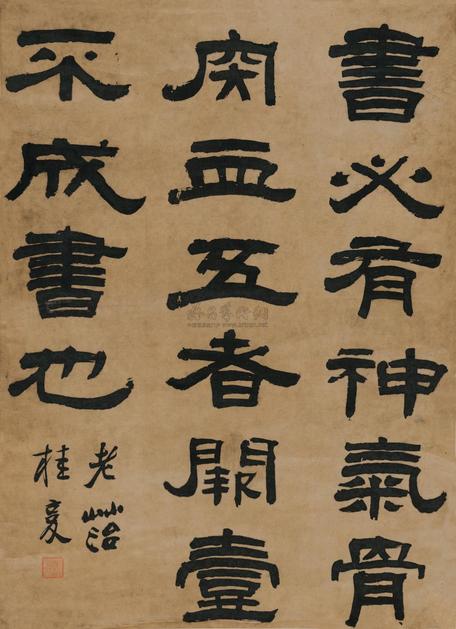 書必有神氣骨
宍血五者闕壹
不成書也
老菭
桂